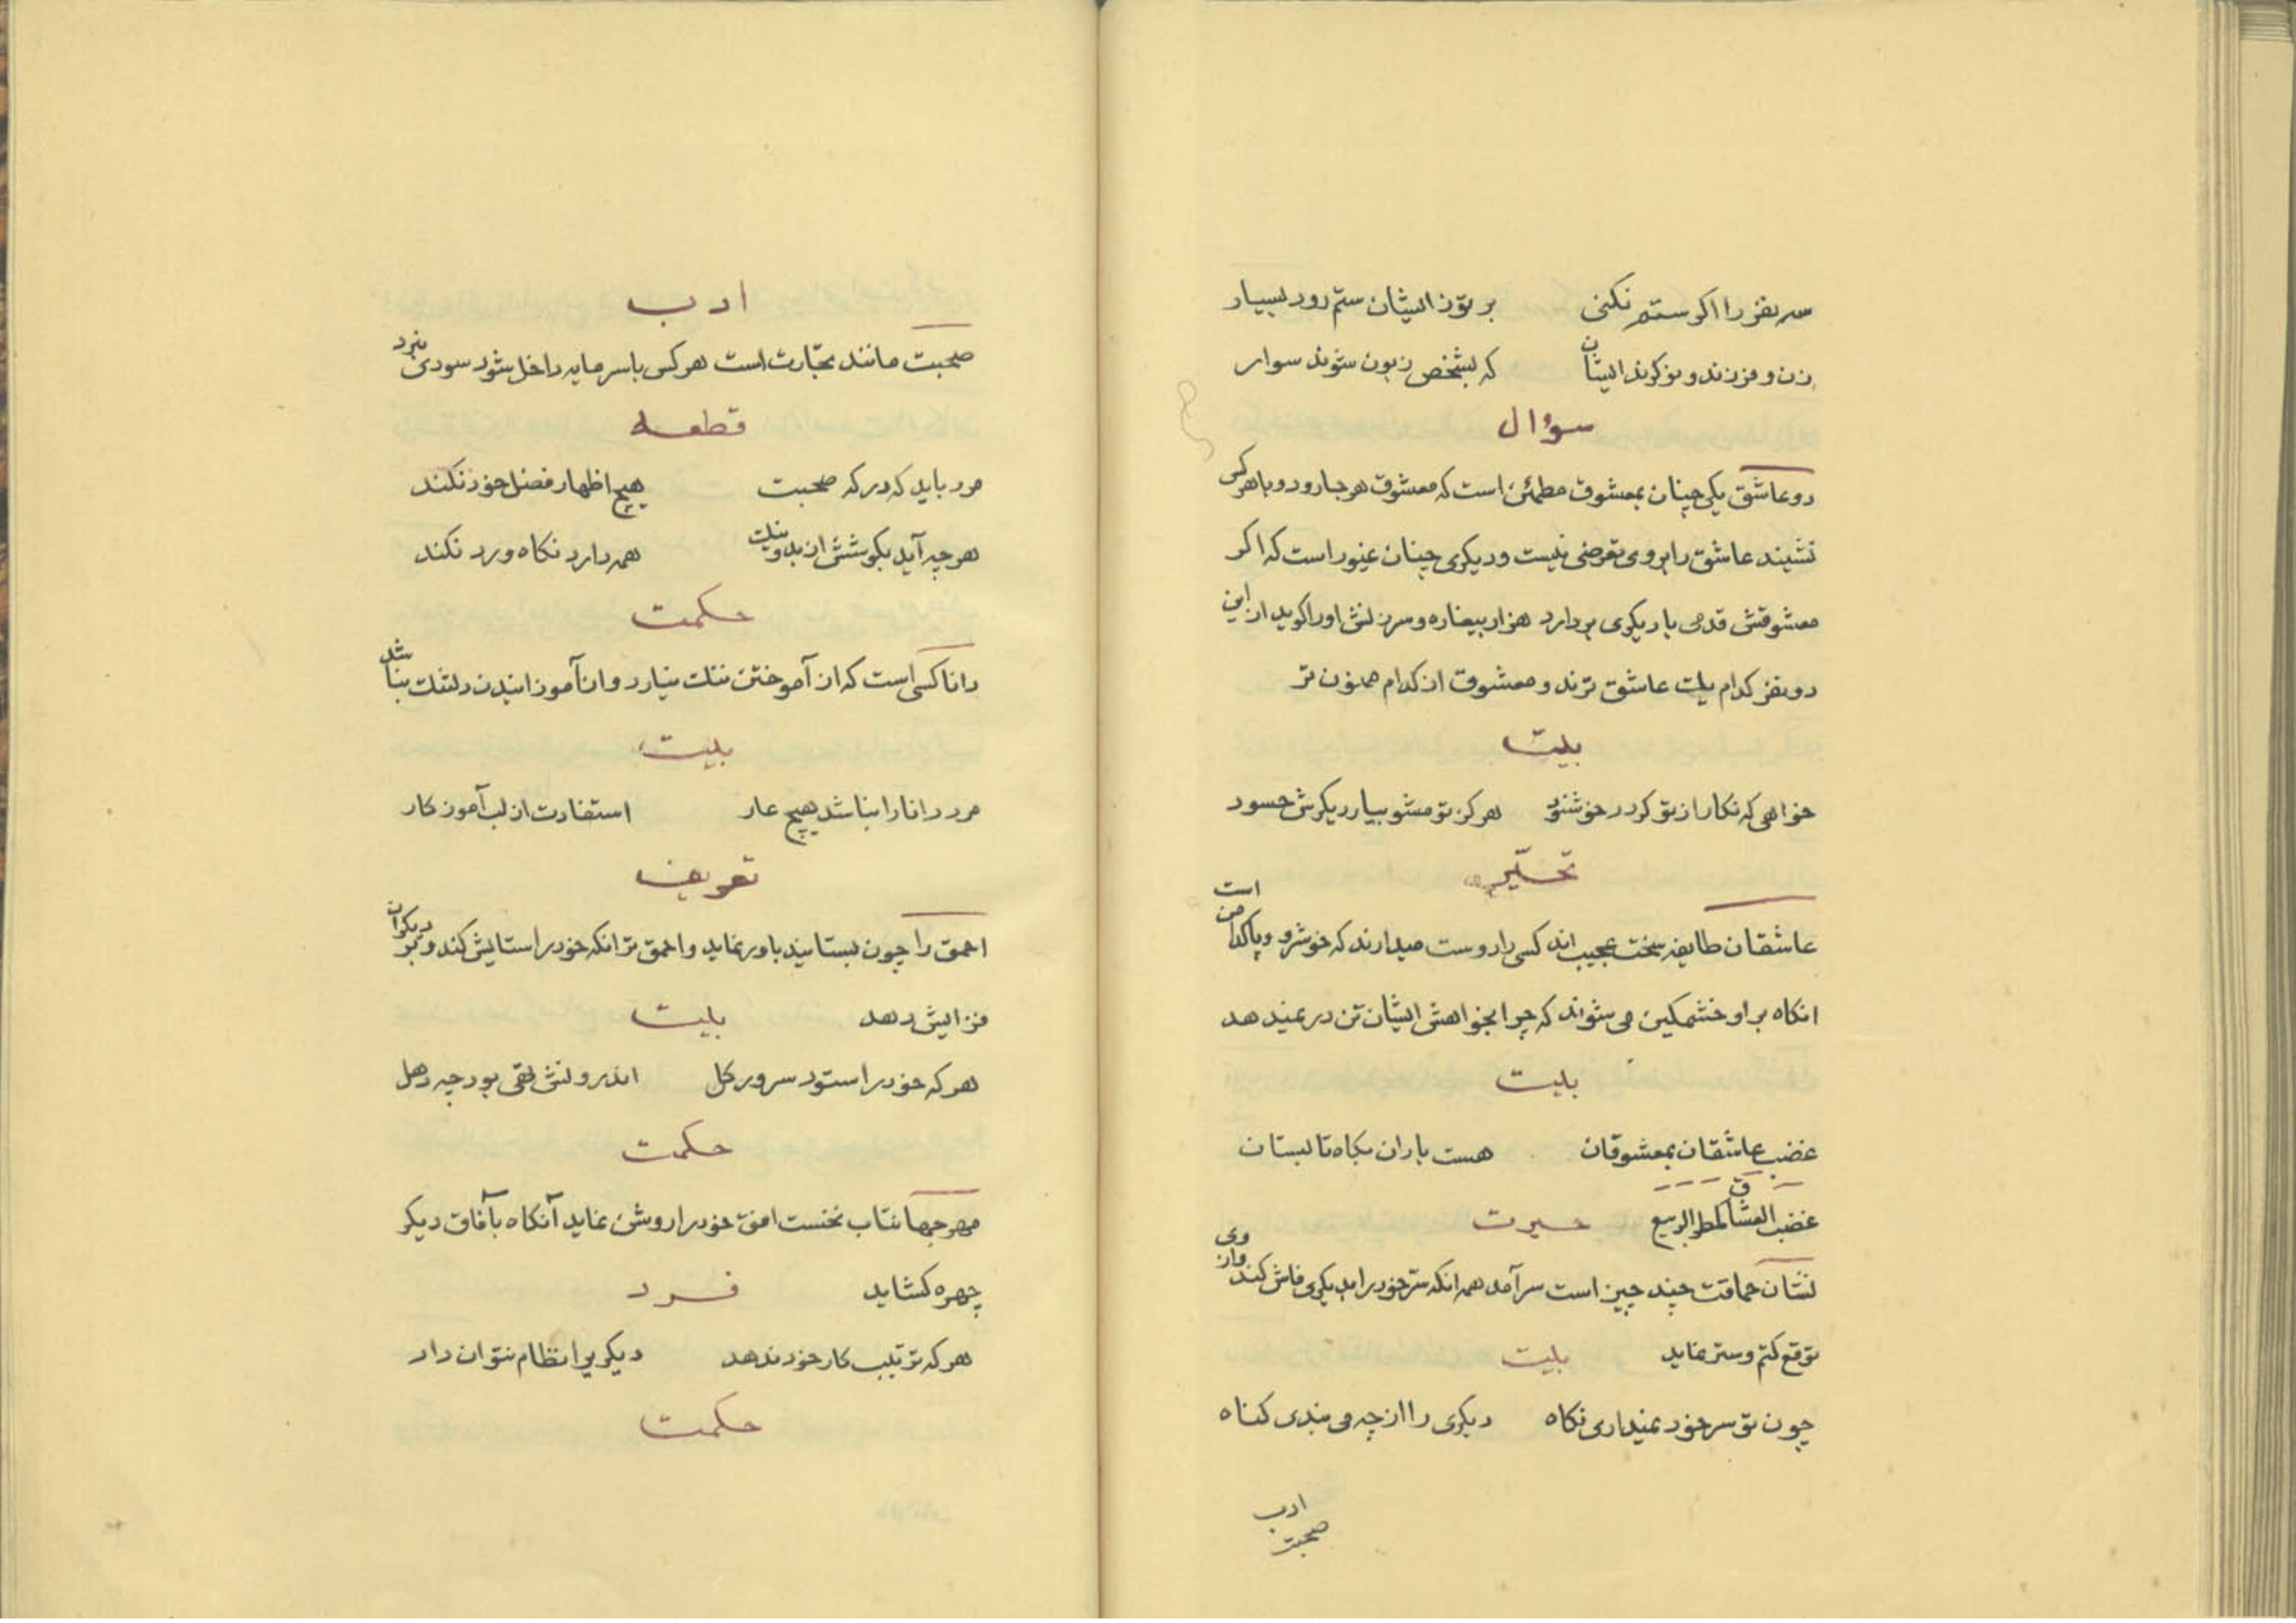 سه نفر را اکر ستم نکنی بر تو از ایشان ستم رود بسیار
زن و فرزند و نوکرند ایشان که بشخص زبون شوند سوار
سؤال
دو عاشق یکی چنان بمعشوق مطمئن است که معشوق هرجا رود و باهرکس
نشیند عاشق را بروی تعرضی نیست و دیکری چنان غیور است که اکر
معشوقش قدمی با دیکری بردارد هزار بیغاره و سرزنش اورا کوید از این
دو نفر کدام یک عاشق ترند و معشوق از کدام ممنون تر
بیت
خواهی که نکار از تو کردد خوشنود هرکز تو مشو بیار دیکرش حسود
تحیّر
عاشقان طایفه سخت عجیب اند کسی را دوست میدارند که خوشرو و پاکدامن است
انکاه بر او خشمکین می شوند که چرا بخواهش ایشان تن در نمیدهد
بیت
غضب عاشقان بمعشوقان هست باران بکاه تابستان
غضب العشاق کمطر الربیع حیرت
نشان حماقت چند چیز است سرآمد همه انکه سرّ خود را بدیکری فاش کند و از وی
توقع کتم و ستر نماید بیت
چون تو سر خود نمیداری نکاه دیکری را از چه می بندی کناه
ادب
صحبت
ادب
صحبت مانند تجّارت است هرکس با سرمایه داخل شود سودی ببرد
قطعه
مرد باید که در که صحبت هیچ اظهار فضل خود نکند
هرچه آید بکوشش از بد و نیک همه دارد نکاه و رد نکند
حکمت
دانا کسی است که از آموختن ننک نیارد و از آموزانیدن دلتنک نباشد
بیت
مرد دانا را نباشد هیچ عار استفادت از لب آموزکار
تعریف
احمق را چون بستایید باور نماید و احمق تر انکه خود را ستایش کند و بر دیکران
فزایش دهد بیت
هرکه خود را ستود سرور کل اندرونش تهی بود چه دهل
حکمت
مهر جهانتاب نخست افق خود را روشن نماید آنکاه بآفاق دیکر
چهره کشاید فرد
هرکه ترتیب کار خود ندهد دیکریرا نظام نتوان داد
حکمت